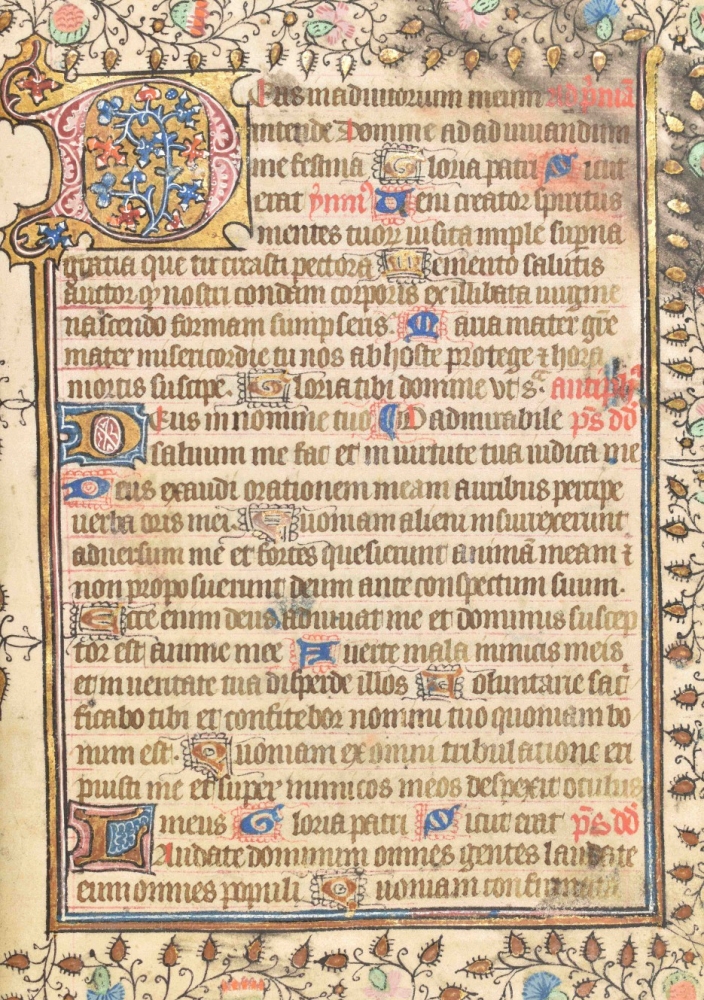 Deus in adiutorium meum ad p̄mā
intende Domine ad adiuuandum
me festina Gloria patri Sicut
erat ymn̄ Ueni creator spiritus
mentes tuor̄ uisita imple sup̄na
gratia que tu creasti pectora Memento salutis
auctor q̄ nostri condam corporis ex illibata uirgine
nascendo formam sumpseris. Maria mater gr̄e
mater misericordie tu nos ab hoste protege ⁊ hora
mortis suscipe. Gloria tibi domine
Deus in nomine tuo O admirabile p̄s dd̄
saluum me fac et in uirtute tua iudica me
Deus exaudi orationem meam auribus percipe
uerba oris mei. Quoniam alieni insurrexerunt
aduersum me et fortes quesierunt animā meam ⁊
non proposuerunt deum ante conspectum suum.
Ecce enim deus adiuuat me et dominus suscep
tor est anime mee Auerte mala inimicis meis
et in ueritate tua disperde illos Uoluntarie sacri
ficabo tibi et confitebor nomini tuo quoniam bo
num est. Quoniam ex omni tribulatione eri
puisti me et super inimicos meos despexit oculus
meus Gloria patri Sicut erat p̄s dd̄
Laudate dominum omnes gentes laudate
eum omnes populi Quoniam confirmata